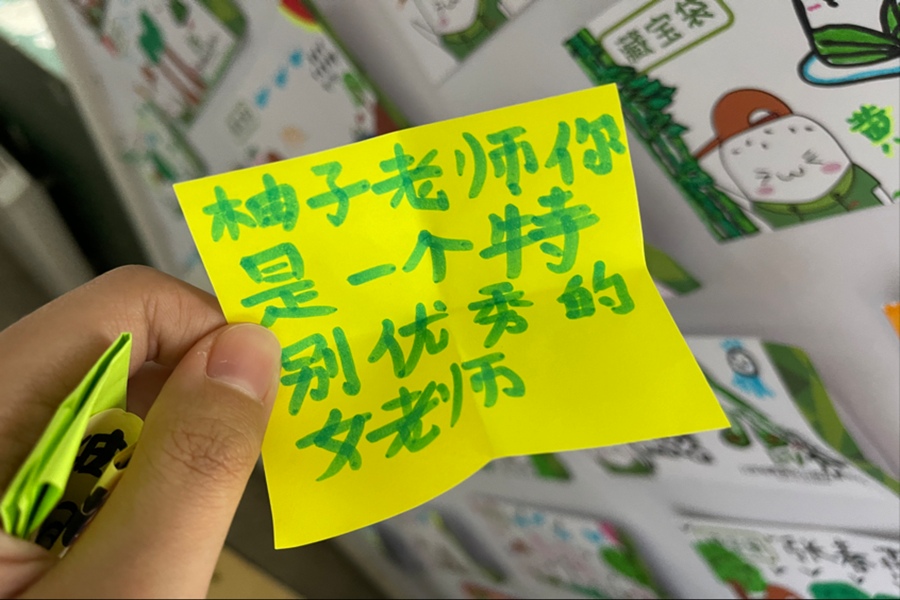 柚子老师你
是一个特
别优秀的
女老师
藏宝袋